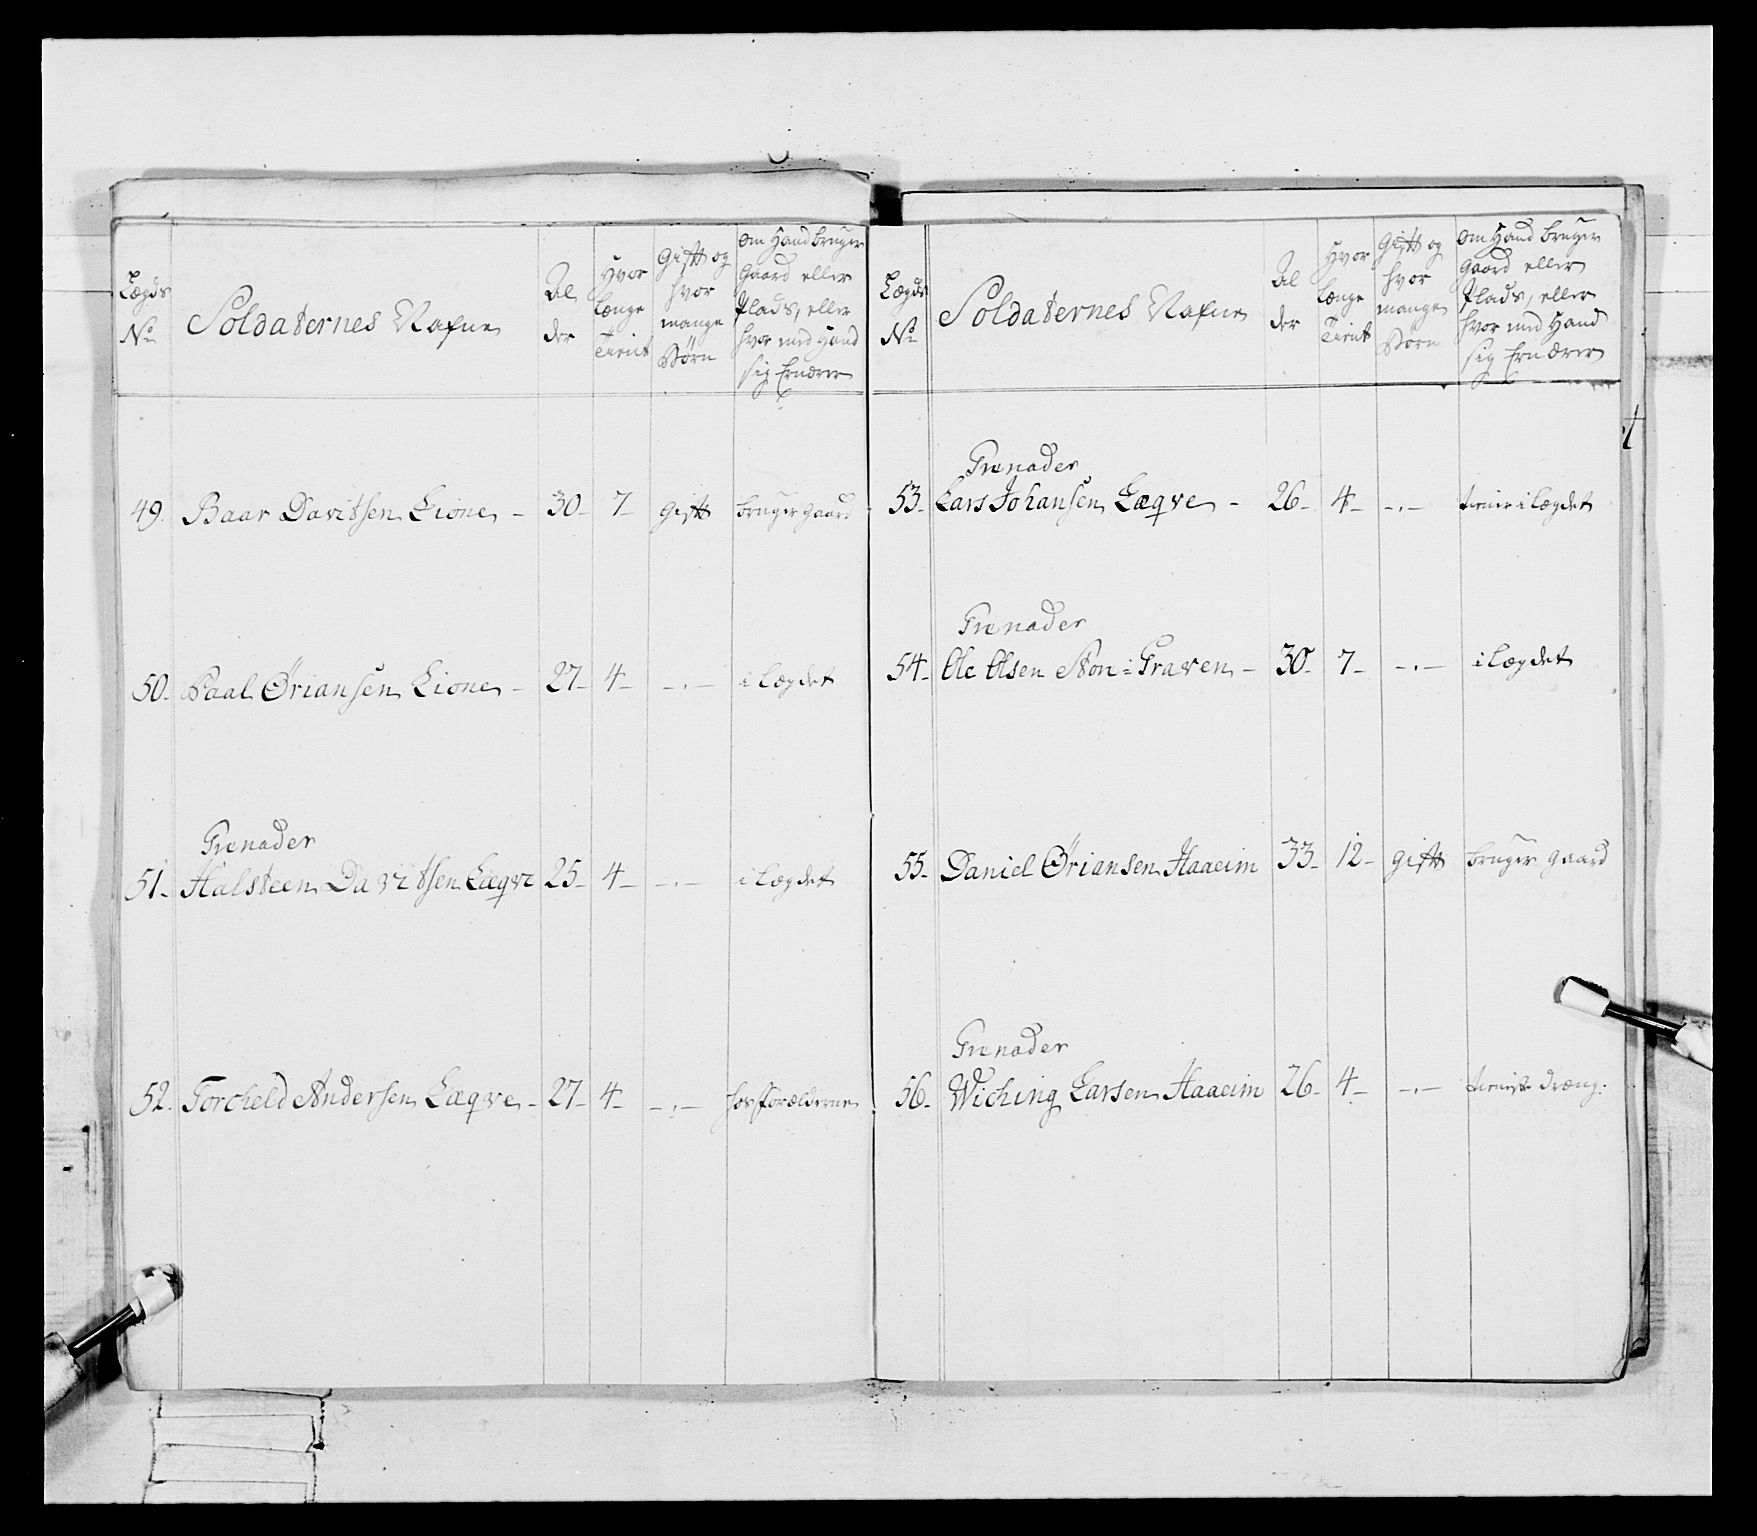 Lægds No
Soldaternes Nafne
Alder
Hvor længe Tient
Gift og hvor mange Børn
Om Hand bruger Gaard eller Plads, eller hvor med Hand sig Ernærer
49. Baar Davitsen Lione – 30– 7– gift bruger gaard
50– Paal Øriansen Lione – 27– 4– –.– i Lægdet
Grenader
51– Halsteen Davitsen Læqve 25– 4– –.– i Lægdet
52. Torcheld Andersen Læqve – 27– 4– –.– hos forælderne
Lægds No
Soldaternes Nafne
Alder
Hvor længe Tient
Gift og hvor mange Børn
Om Hand bruger Gaard eller Plads, eller hvor med Hand sig Ernærer
Grenader
53– Lars Johansen Læqve – 26– 4– –.– tiener i Lægdet
Grenader
54– Ole Olsen Graven – 30– 7– –.– i Lægdet
55– Daniel Øriansen Haaeim 33– 12– gift bruger gaard
Grenader
56– Wiching Larsen Haaeim 26– 4– –.– tieniste dræng.